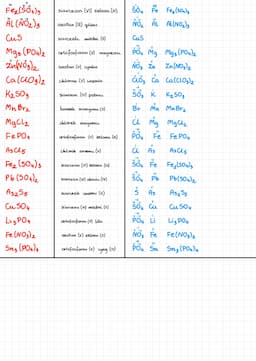 Fe₂(SO₃)₃ siarczan (IV) żelaza (III) SO₃ Fe Fe₂(SO₃)₃
Al(NO₂)₃ azotan (III) glinu NO₂ Al Al(NO₂)₃
CuS siarczek miedzi (II) CuS
Mg₃(PO₄)₂ ortofosforan (V) magnezu PO₄ Mg Mg₃(PO₄)₂
Zn(NO₃)₂ azotan (V) cynku NO₃ Zn Zn(NO₃)₂
Ca(ClO₃)₂ chloran (V) wapnia ClO₃ Ca Ca(ClO₃)₂
K₂SO₄ siarczan (VI) potasu SO₄ K K₂SO₄
MnBr₂ bromek manganu (II) Br Mn MnBr₂
MgCl₂ chlorek magnezu Cl Mg MgCl₂
FePO₄ ortofosforan (V) żelaza (III) PO₄ Fe FePO₄
AsCl₅ chlorek arsenu (V) Cl As AsCl₅
Fe₂(SO₄)₃ siarczan (VI) żelaza (III) SO₄ Fe Fe₂(SO₄)₃
Pb(SO₄)₂ siarczan (VI) ołowiu (IV) SO₄ Pb Pb(SO₄)₂
As₂S₅ siarczek arsenu (V) S As As₂S₅
CuSO₄ siarczan (VI) miedzi (II) SO₄ Cu CuSO₄
Li₃PO₄ ortofosforan (V) litu PO₄ Li Li₃PO₄
Fe(NO₃)₂ azotan (V) żelaza (II) NO₃ Fe Fe(NO₃)₂
Sn₃(PO₄)₄ ortofosforan (V) cyny (IV) PO₄ Sn Sn₃(PO₄)₄